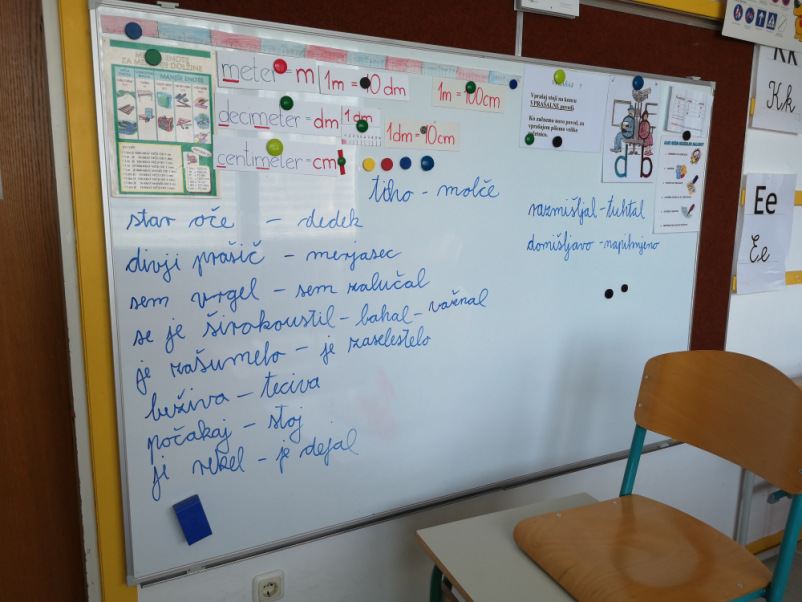 MERSKE ENOTE
ZA MERJENJE DOLŽINE
MANJŠE ENOTE
meter = m
1m = 10 dm
1m = 100cm
decimeter = dm
1 dm
1dm = 10cm
centimeter = cm
Vprašaj stoji na koncu
VPRAŠALNE povedi.
Ko začnemo novo poved, za
vprašajem pišemo veliko
d b
K k
Ee
tiho - molče
star oče - dedek
divji prašič - merjasec
sem vrgel - sem zalučal
se je širokoustil - bahal - važnal
je zašumelo - je zaselestelo
beživa - teciva
počakaj - stoj
ji rekel - je dejal
razmišljal - tuhtal
domišljavo - napihnjeno